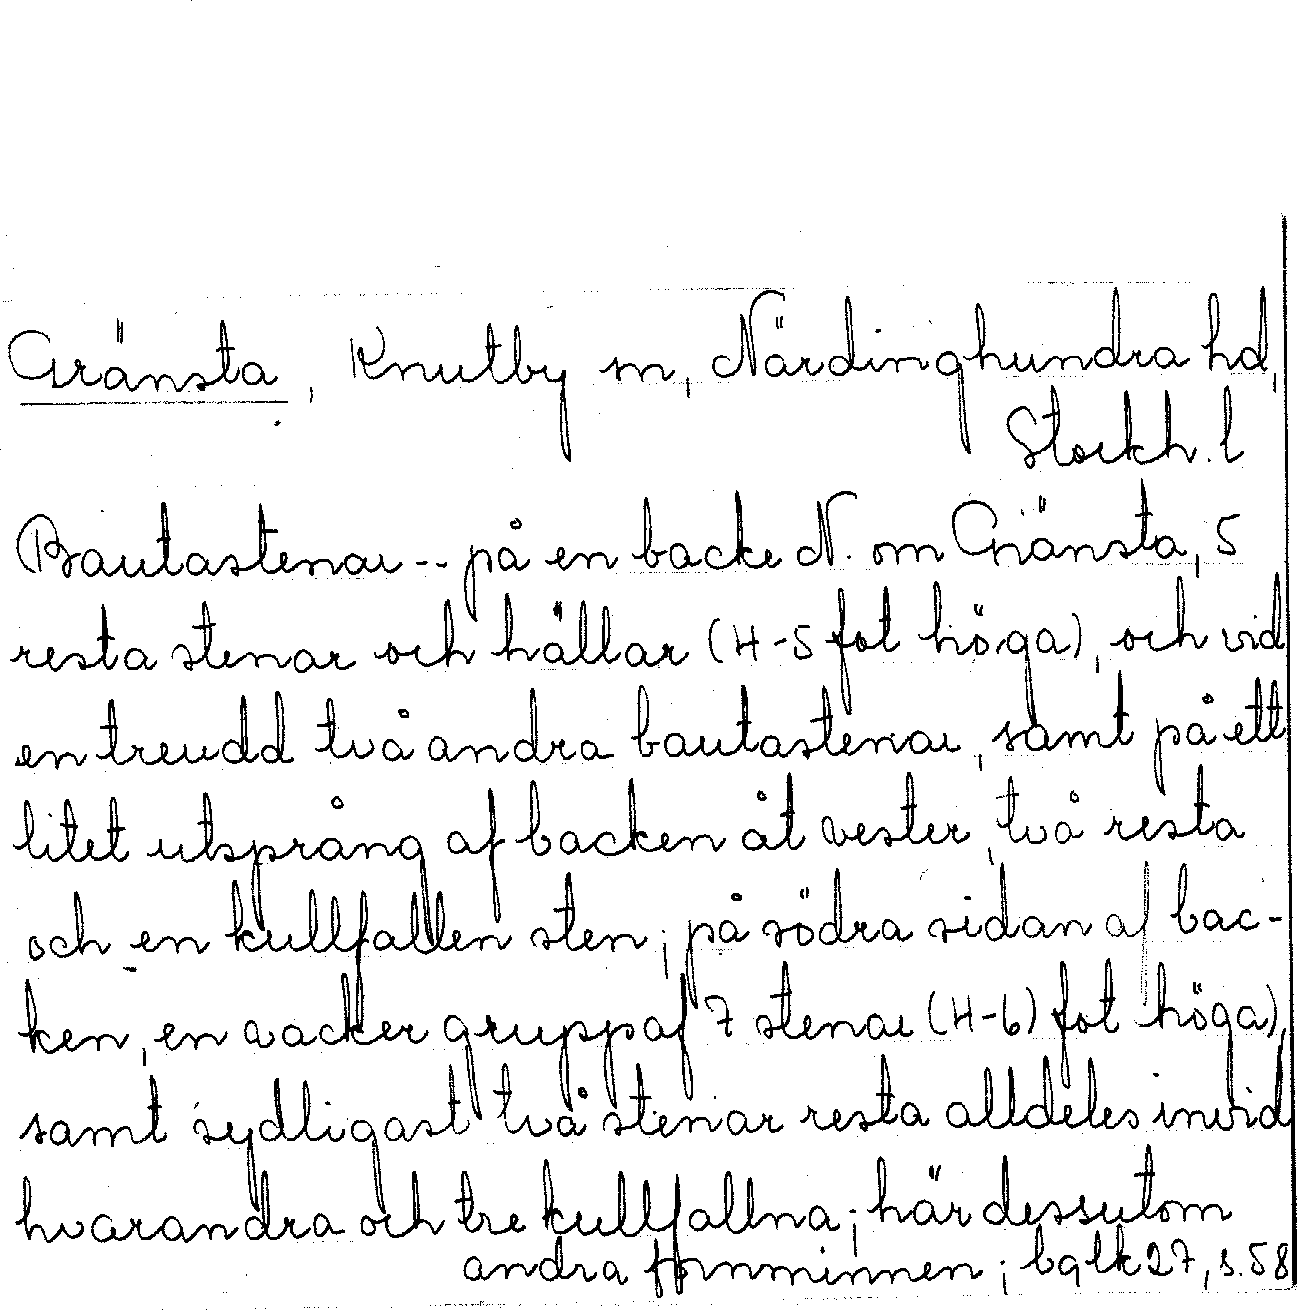 Gränsta, Knutby sn, Närdinghundra hd,
Stockh. l
Bautastenar -- på en backe N. om Gränsta, 5
resta stenar och hällar (4-5 fot höga), och vid
en treudd två andra bautastenar, samt på ett
litet utsprång af backen åt vester, två resta
och en kullfallen sten; på södra sidan af bac-
ken, en vacker grupp af 7 stenar (4-6) fot höga),
samt sydligast två stenar resta alldeles invid
hvarandra och tre kullfallna; här dessutom
andra fornminnen; bglk 27, s. 58